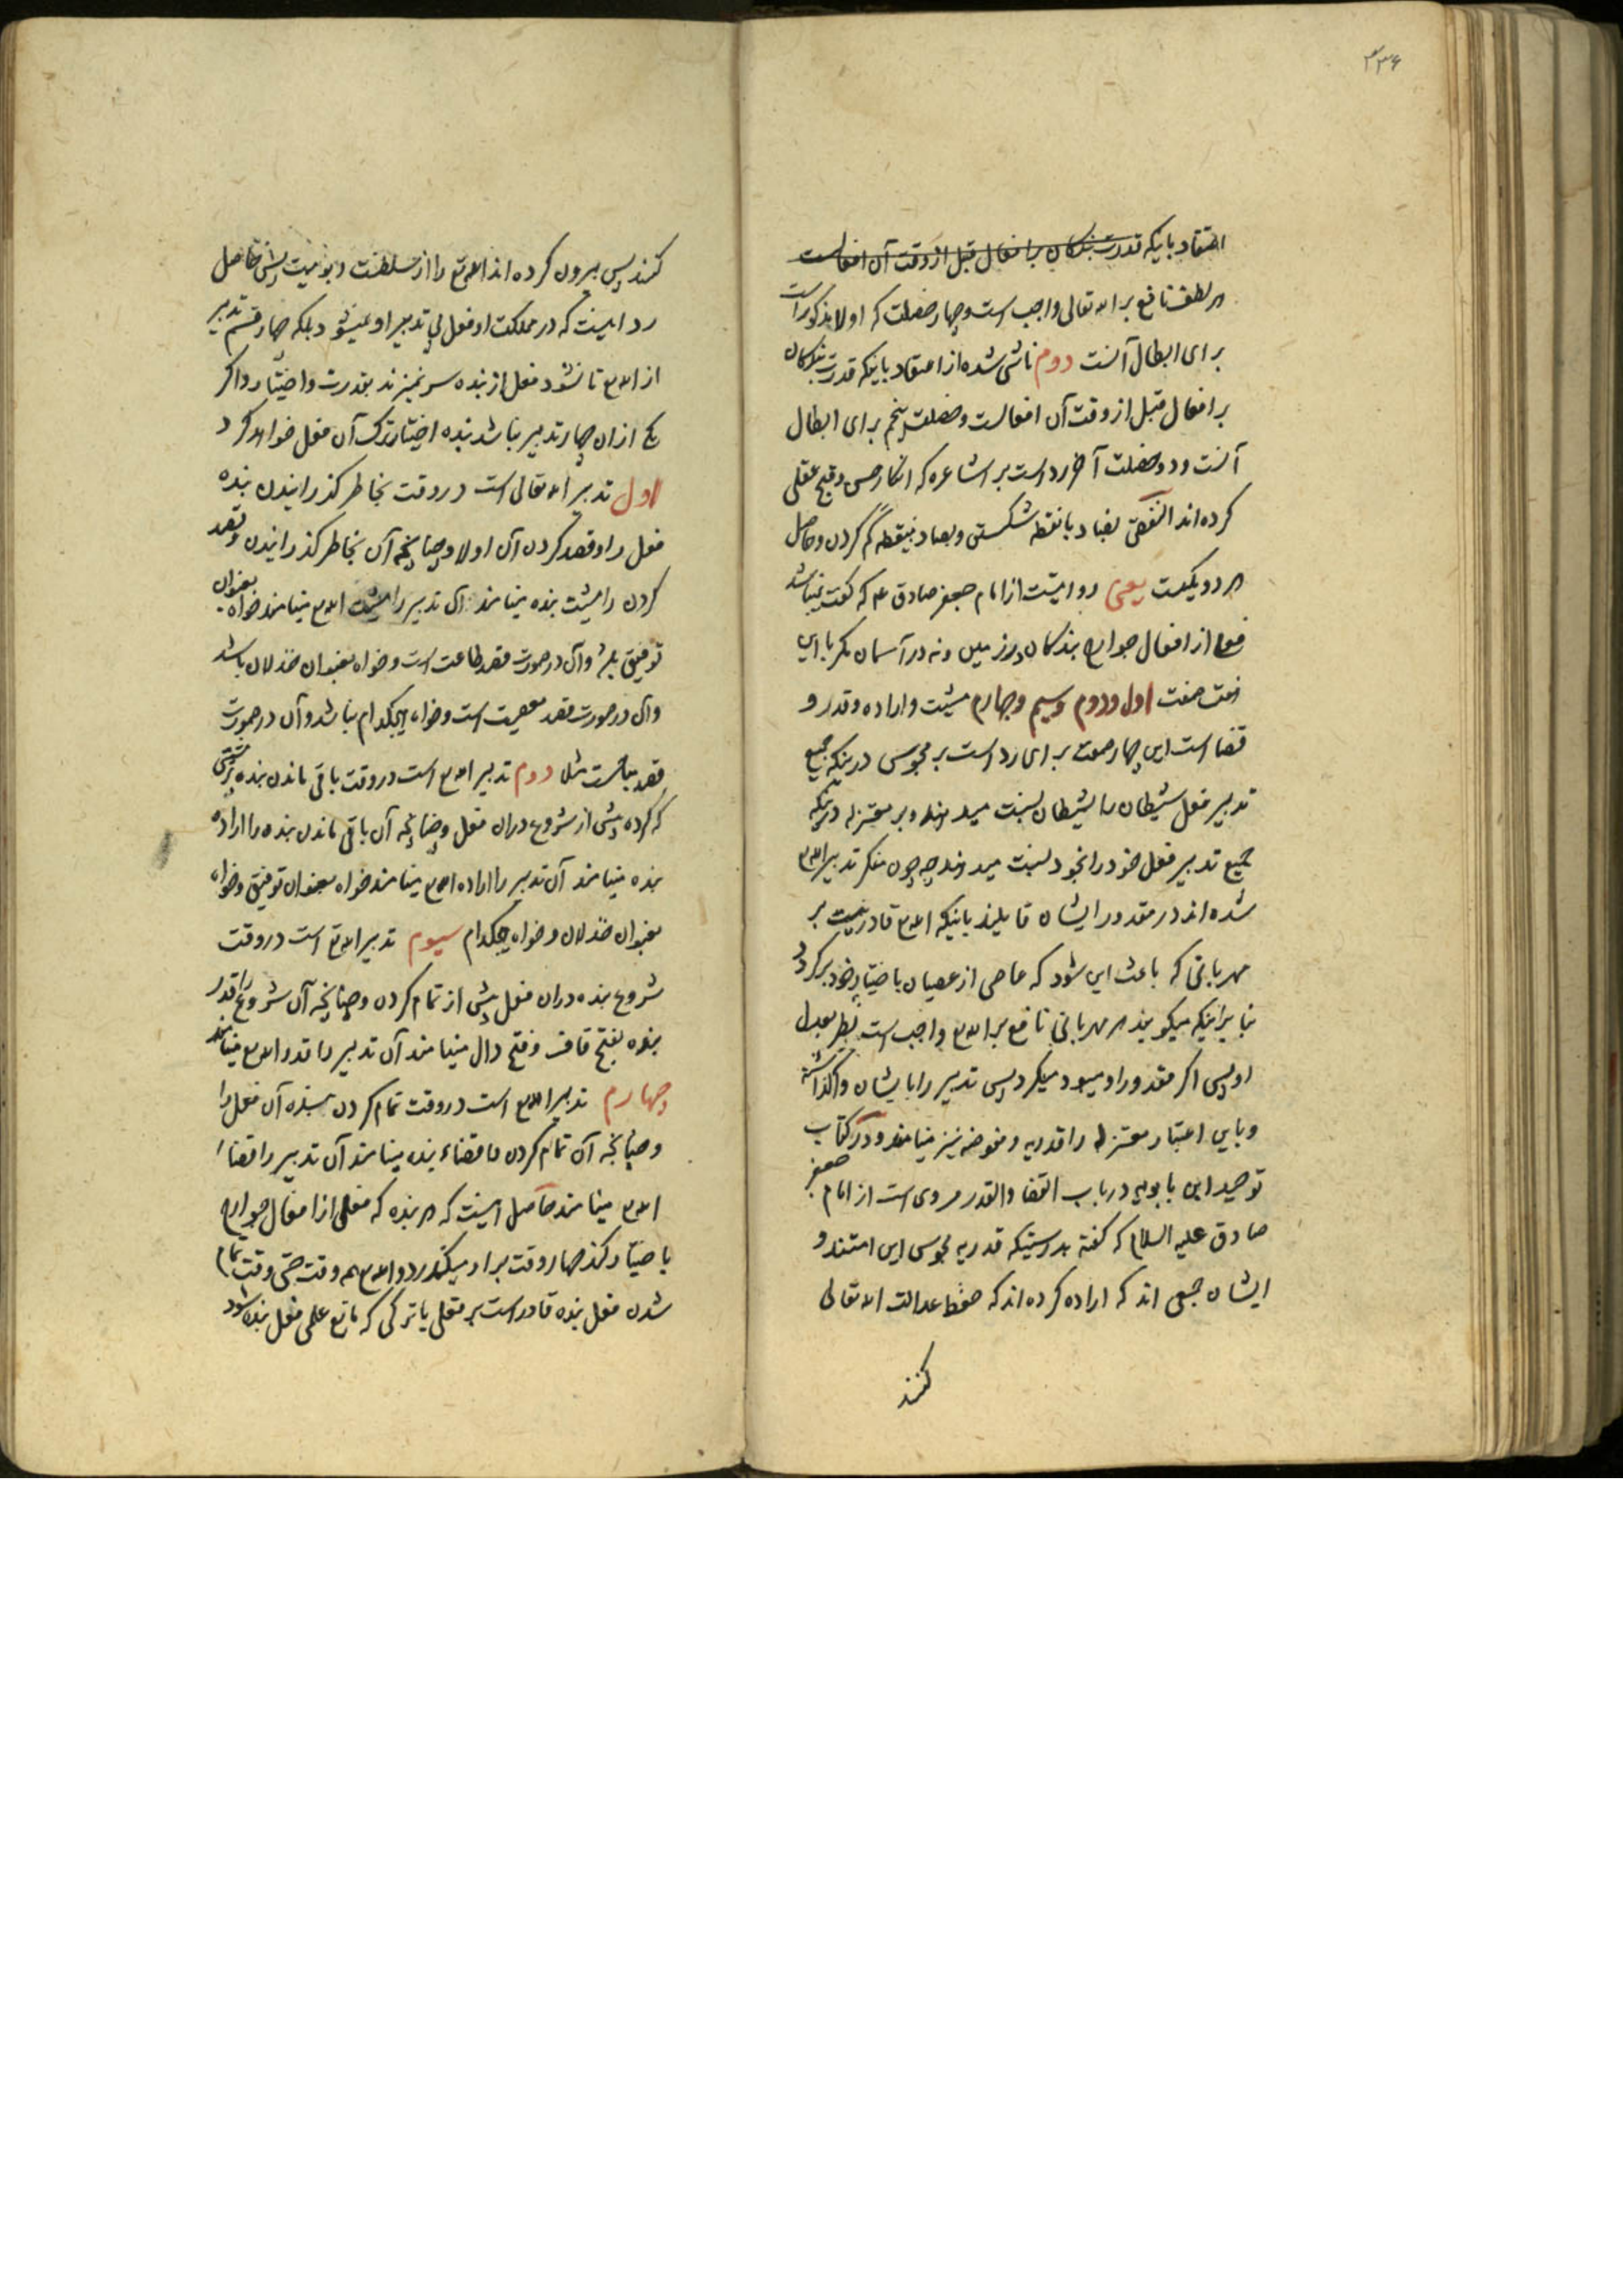 ۳۳۶
اعتقاد باینکه قدرت بندگان بر افعال قبل از وقت آن افعالست
هر لطف نافع بر الله تعالی واجب است و چهار خصلت که اولا مذکور است
برای ابطال آنست دوم ناشی شده از اعتقاد باینکه قدرت بندگان
بر افعال قبل از وقت آن افعالست و خصلت پنجم برای ابطال
آنست و دو خصلت آخر رد است بر اشاعره که انکار حسن و قبح عقلی
کرده اند النقض بضاد با نقطه شکستن و بصاد بینقطه کم کردن و حاصل
هر دو یکیست یعنی روایتست از امام جعفر صادق ع که گفت نمیباشد
فعلی از افعال جوارح بندکان در زمین و نه در آسمان مکر با این
هفت صفت اول و دوم و سیم و چهارم مشیت و اراده و قدر و
قضا است این چهار صفت برای رد است بر مجوس درینکه جمیع
تدبیر فعل شیطان را بشیطان نسبت میدهند و بر معتزله درینکه
جمیع تدبیر فعل خود را بخود نسبت میدهند چه چون منکر تدبیر الله ع
شده اند در مقدور ایشان قایلند باینکه الله ع قادر نیست بر
مهربانی که باعث این شود که عاصی از عصیان باختیار خود برگردد
بنابر اینکه میکویند هر مهربانی نافع بر الله ع واجب است نظر بعدل
او پس اگر مقدور او میبود میکرد پس تدبیر را بایشان واگذاشته
و باین اعتبار معتزله را قدریه و مفوضه نیز مینامند و در کتاب
توحید ابن بابویه در باب القضا والقدر مروی است از امام جعفر
صادق علیه السلام که گفته بدرستیکه قدریه مجوس این امتند و
ایشان جمعی اند که اراده کرده اند که حفظ عدالت الله تعالی
کنند
کنند پس بیرون کرده اند الله تع را از سلطنت و ربوبیت پیش حاصل
رد اینست که در مملکت او فعل بی تدبیر او نمیشود بلکه چهار قسم تدبیر
از الله ع تا نشود فعل از بنده سر نمیزند بقدرت و اختیار و اگر
یکی از ان چهار تدبیر نباشد بنده اختیار ترک آن فعل خواهد کرد
اول تدبیر الله تعالی است در وقت بخاطر گذرانیدن بنده
فعل را و قصد کردن آن اولا و چنانچه آن بخاطر گذرانیدن و قصد
کردن را مشیت بنده مینامند آن تدبیر را مشیت الله ع مینامند خواه بعنوان
توفیق باشد و آن در صورت قصد طاعت است و خواه بعنوان خذلان باشد
و آن در صورت قصد معصیت است و خواه هیچکدام نباشد و آن در صورت
قصد مباحست مثلا دوم تدبیر الله ع است در وقت باقی ماندن بنده بر مشیتی
که کرده پیش از شروع دران فعل و چنانچه آن باقی ماندن بنده را اراده
بنده مینامند آن تدبیر را اراده الله ع مینامند خواه بعنوان توفیق و خواه
بعنوان خذلان و خواه هیچکدام سیوم تدبیر الله تع است در وقت
شروع بنده دران فعل پیش از تمام کردن و چنانچه آن شروع را قدر
بنده بفتح قاف و فتح دال مینامند آن تدبیر را قدر الله ع مینامند
چهارم تدبیر الله ع است در وقت تمام کردن بنده آن فعل را
و چنانچه آن تمام کردن را قضاء بنده مینامند آن تدبیر را قضاء
الله ع مینامند حاصل اینست که هر بنده که فعلی از افعال جوارح
باختیار کند چهار وقت بر او میگذرد و الله ع همه وقت حتی وقت تمام
شدن فعل بنده قادر است بر فعلی یا ترکی که مانع علمی فعل بنده شود